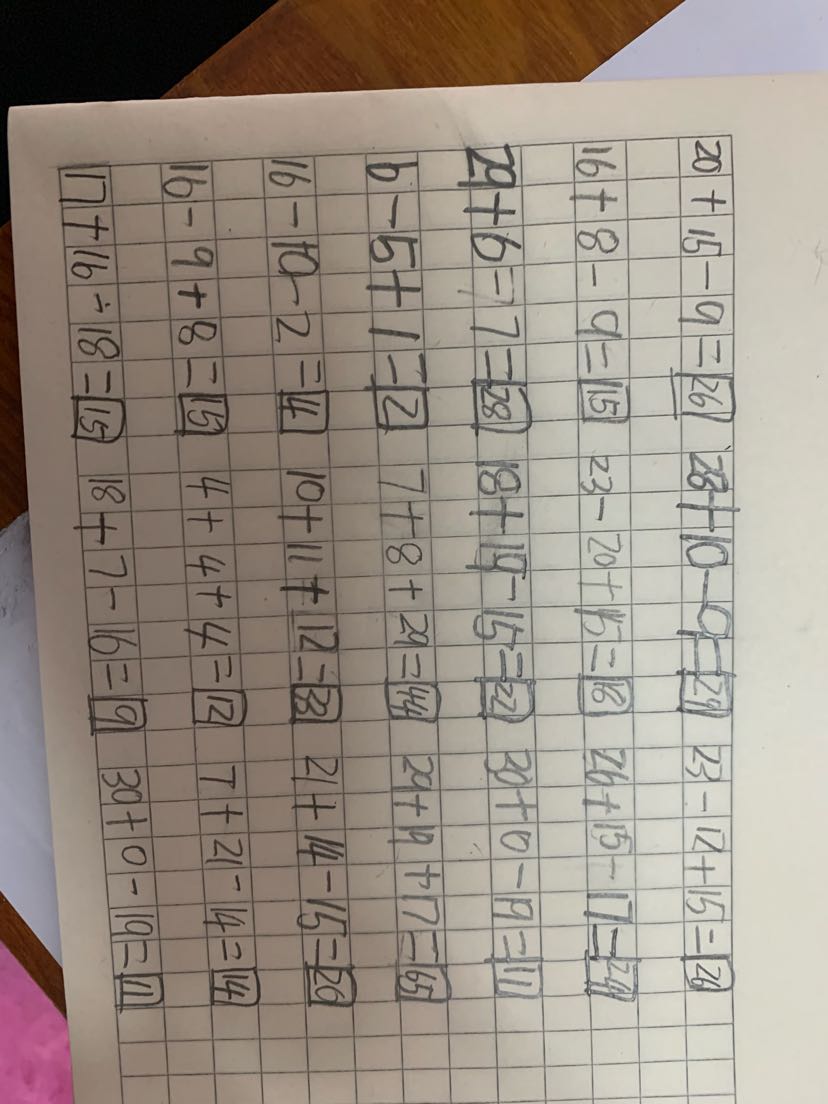 20+15-9=26 28+10-9=29 23-12+15=26
16+8-9=15 23-20+15=18 26+15-17=24
29+6-7=28 18+19-15=22 30+0-19=11
6-5+1=2 7+8+29=44 29+19+17=65
16-10-2=4 10+11+12=33 21+14-15=20
16-9+8=15 4+4+4=12 7+21-14=14
17+16-18=15 18+7-16=9 30+0-19=11